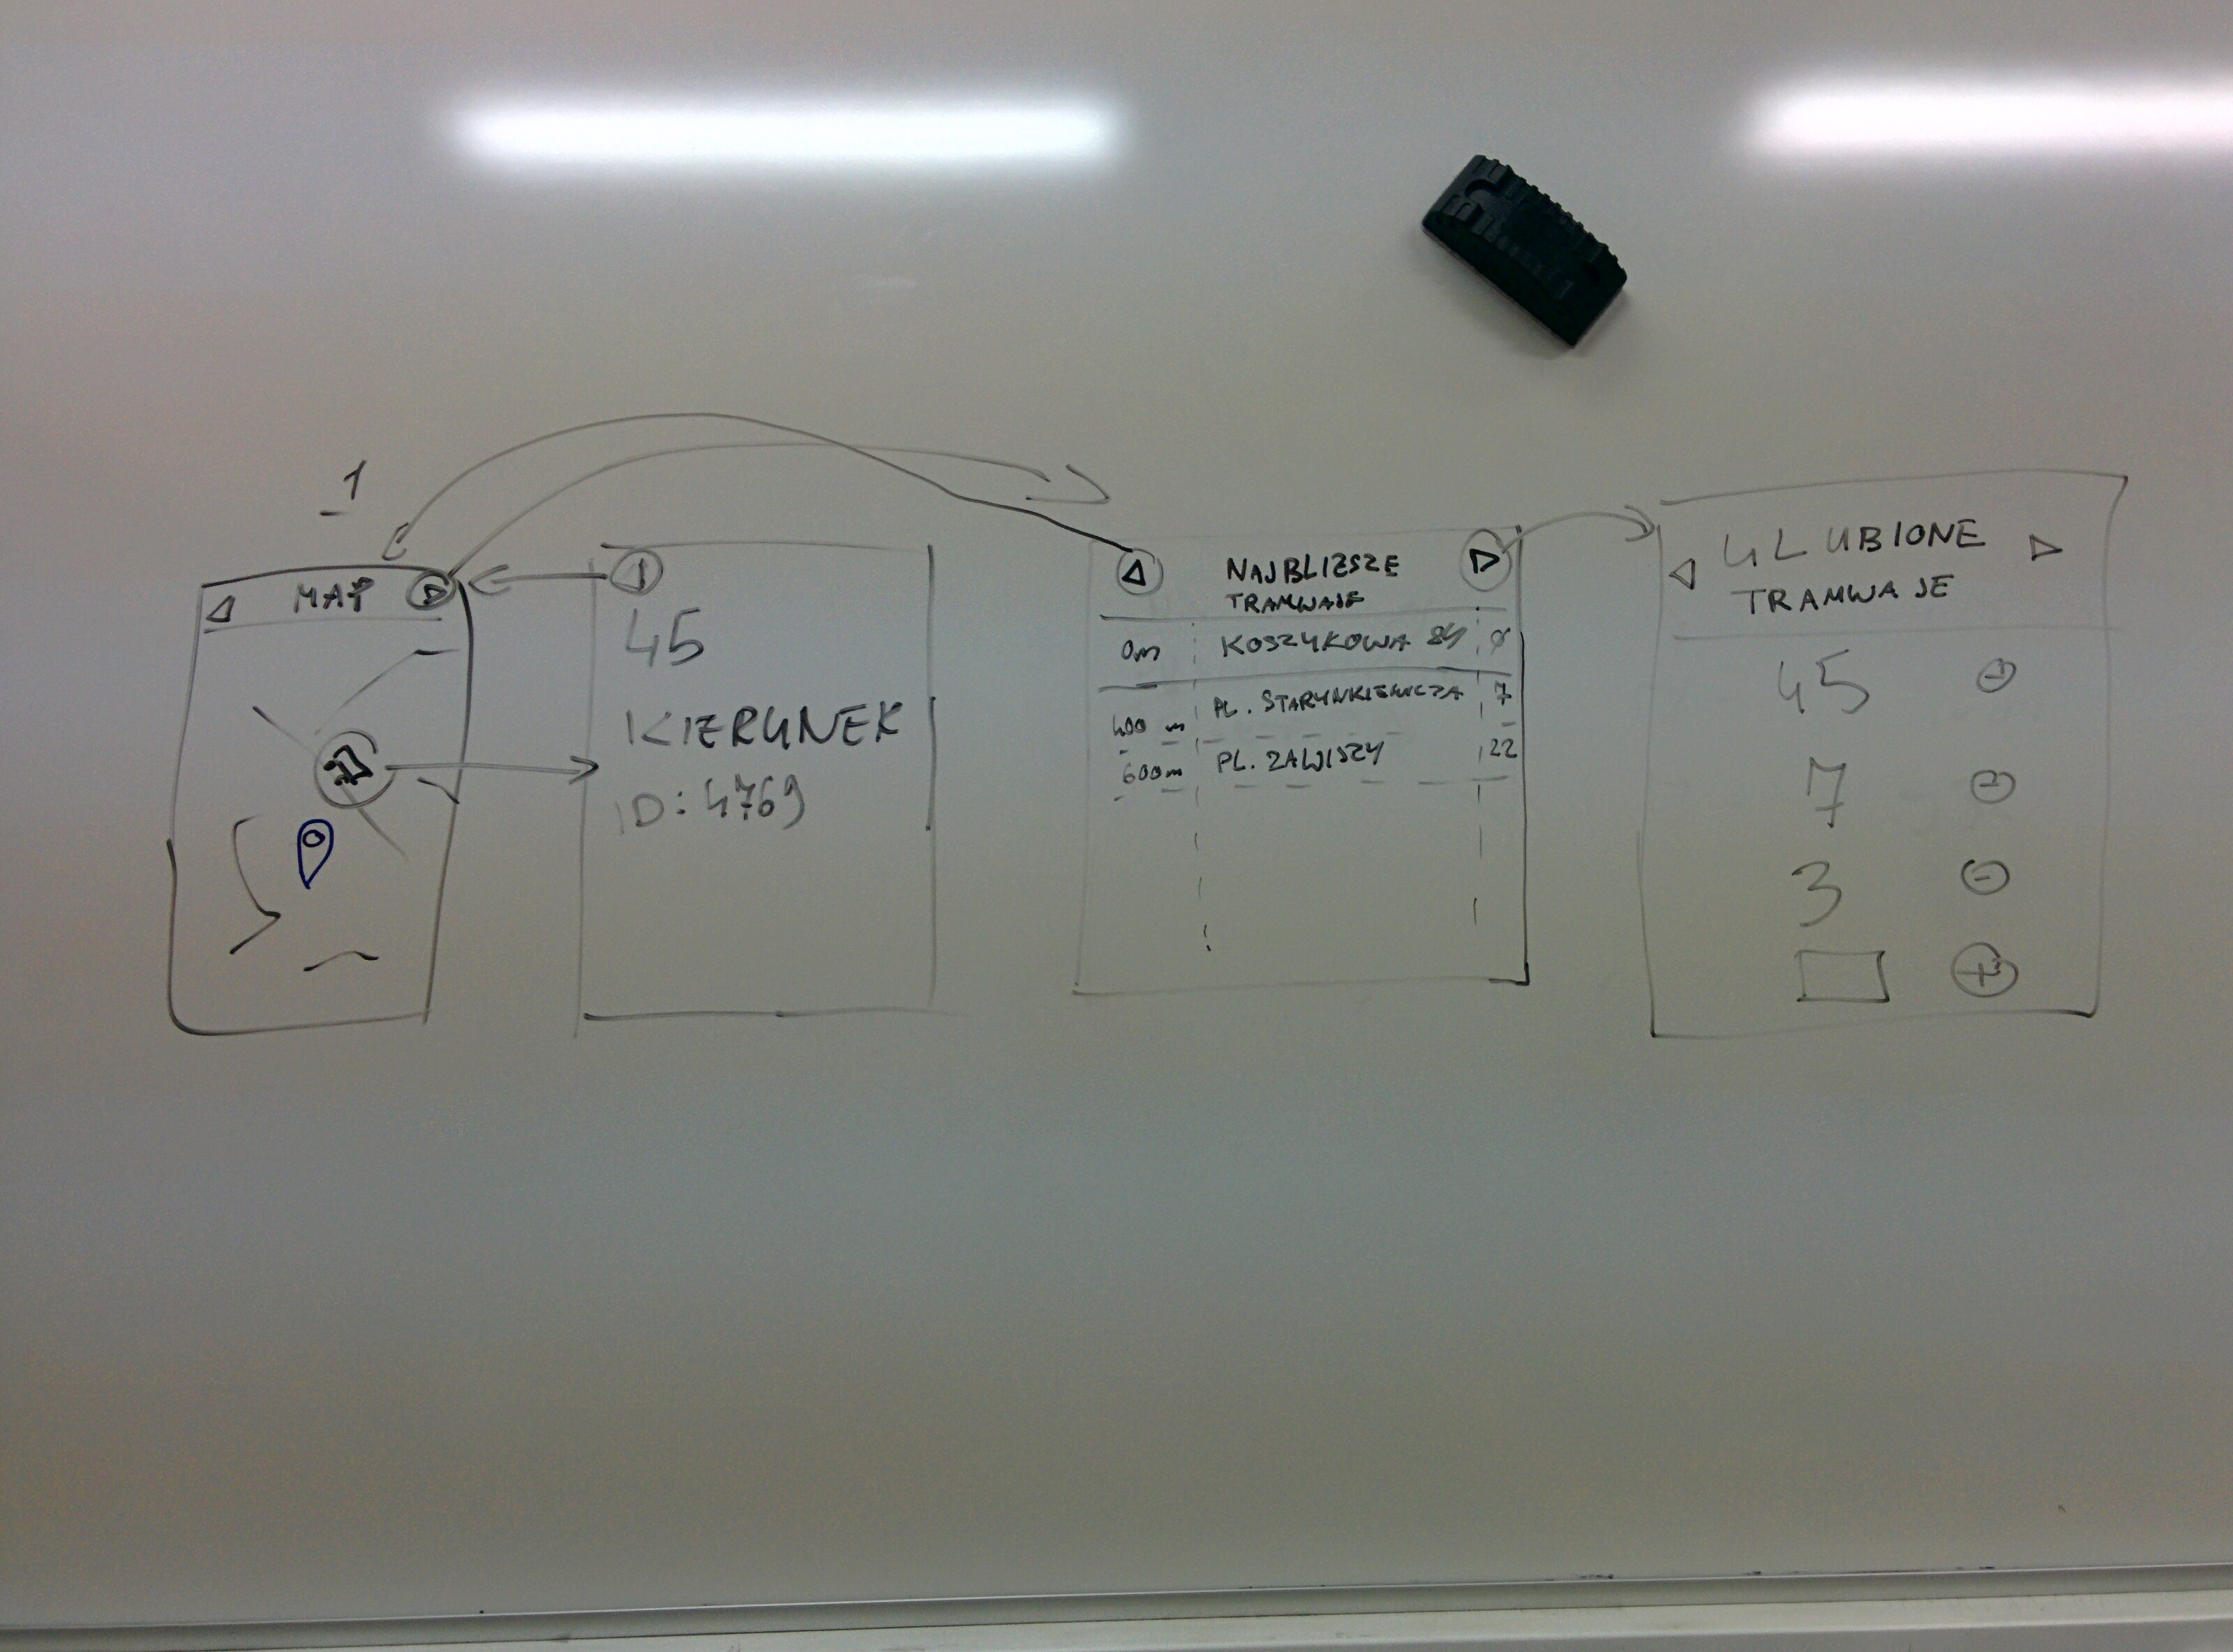 1
MAP
45
KIERUNEK
ID: 4769
NAJBLIŻSZE
TRAMWAJE
0m KOSZYKOWA 84
400 m PL. STARYNKIEWICZA 7
600m PL. ZAWISZY 22
ULUBIONE
TRAMWAJE
45 -
7 -
3 -
+